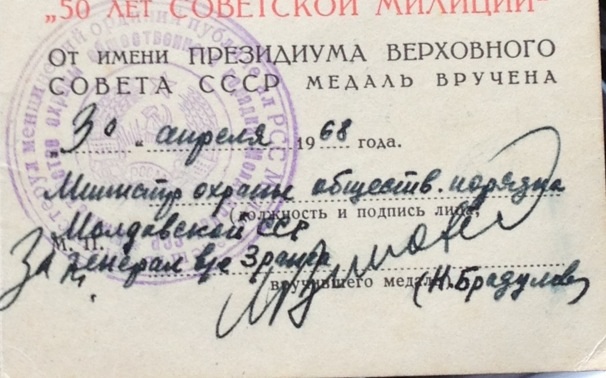 „50 ЛЕТ СОВЕТСКОЙ МИЛИЦИИ"
От имени ПРЕЗИДИУМА ВЕРХОВНОГО
СОВЕТА СССР МЕДАЛЬ ВРУЧЕНА
„30" апреля 1968 года.
Министр охраны обществ. порядка
(должность и подпись лица,
Молдавской ССР
М. П.
За генерал вс 3 ранга
вручившего медаль)
(Н. Брадулов)